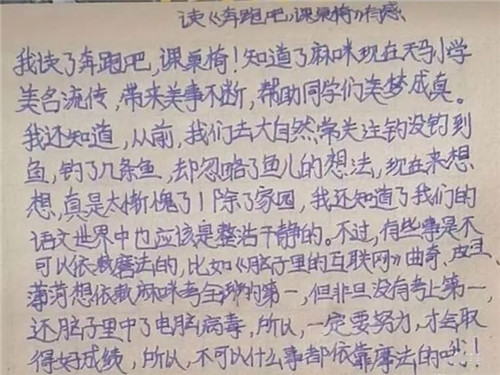 读《奔跑吧,课桌椅》有感
我读了奔跑吧,课桌椅!知道了麻咪现在天马小学
美名流传,带来美事不断,帮助同学们美梦成真。
我还知道,从前,我们去大自然常关注钓没钓到
鱼,钓了几条鱼,却忽略了鱼儿的想法,现在来想
想,真是太惭愧了!除了家园,我还知道了我们的
语文世界中也应该是整洁干静的。不过,有些事是不
可以依靠魔法的,比如《脑子里的互联网》曲奇、皮皮、
薄荷想依靠麻咪考全班的第一,但非旦没有考上第一,
还脑子里中了电脑病毒,所以,一定要努力,才会取
得好成绩,所以,不可以什么事都依靠魔法的哟!